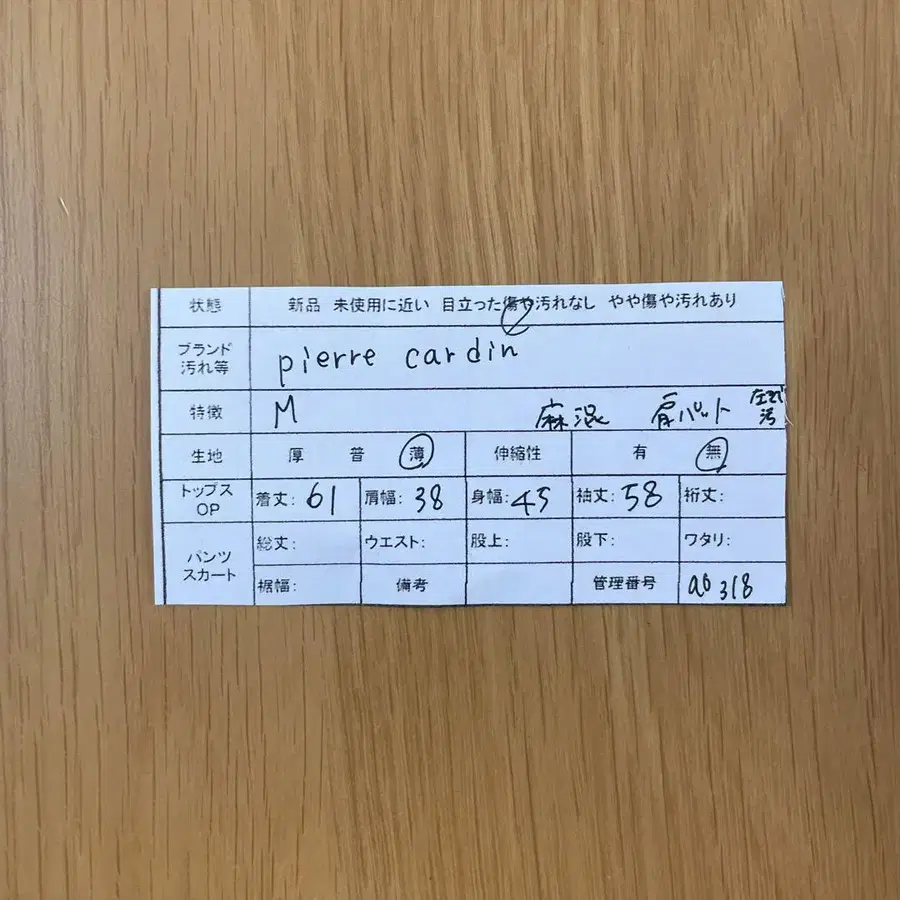 状態 新品 未使用に近い 目立った傷や汚れなし やや傷や汚れあり
ブランド
汚れ等 pierre cardin
特徴 M 麻混 肩パット 左そで
汚
生地 厚 普 薄 伸縮性 有 無
トップス
OP 着丈: 61 肩幅: 38 身幅: 45 袖丈: 58 裄丈:
パンツ
スカート 総丈: ウエスト: 股上: 股下: ワタリ:
裾幅: 備考 管理番号 a0318